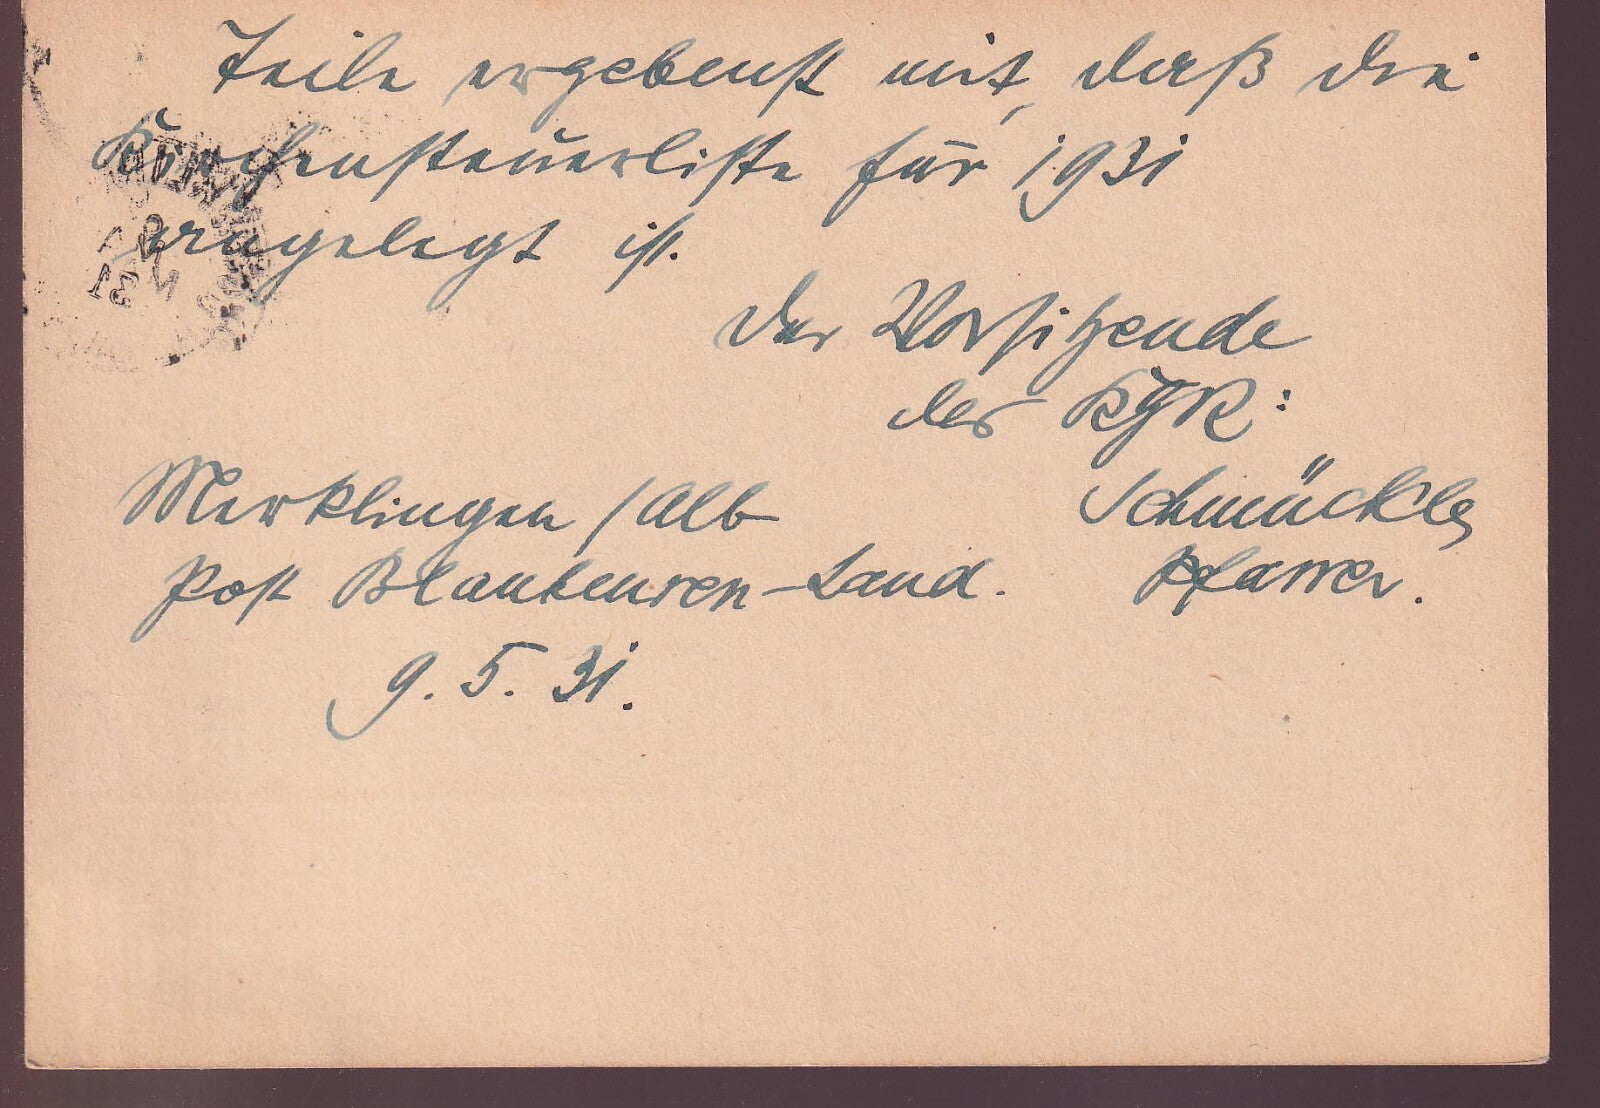 Teile ergebenst mit, daß die
Kirchensteuerliste für 1931
angelegt ist.
Der Vorsitzende
des KGR:
Merklingen / Alb Schmückle
Post Blaubeuren-Land. Pfarrer.
9. 5. 31.
31